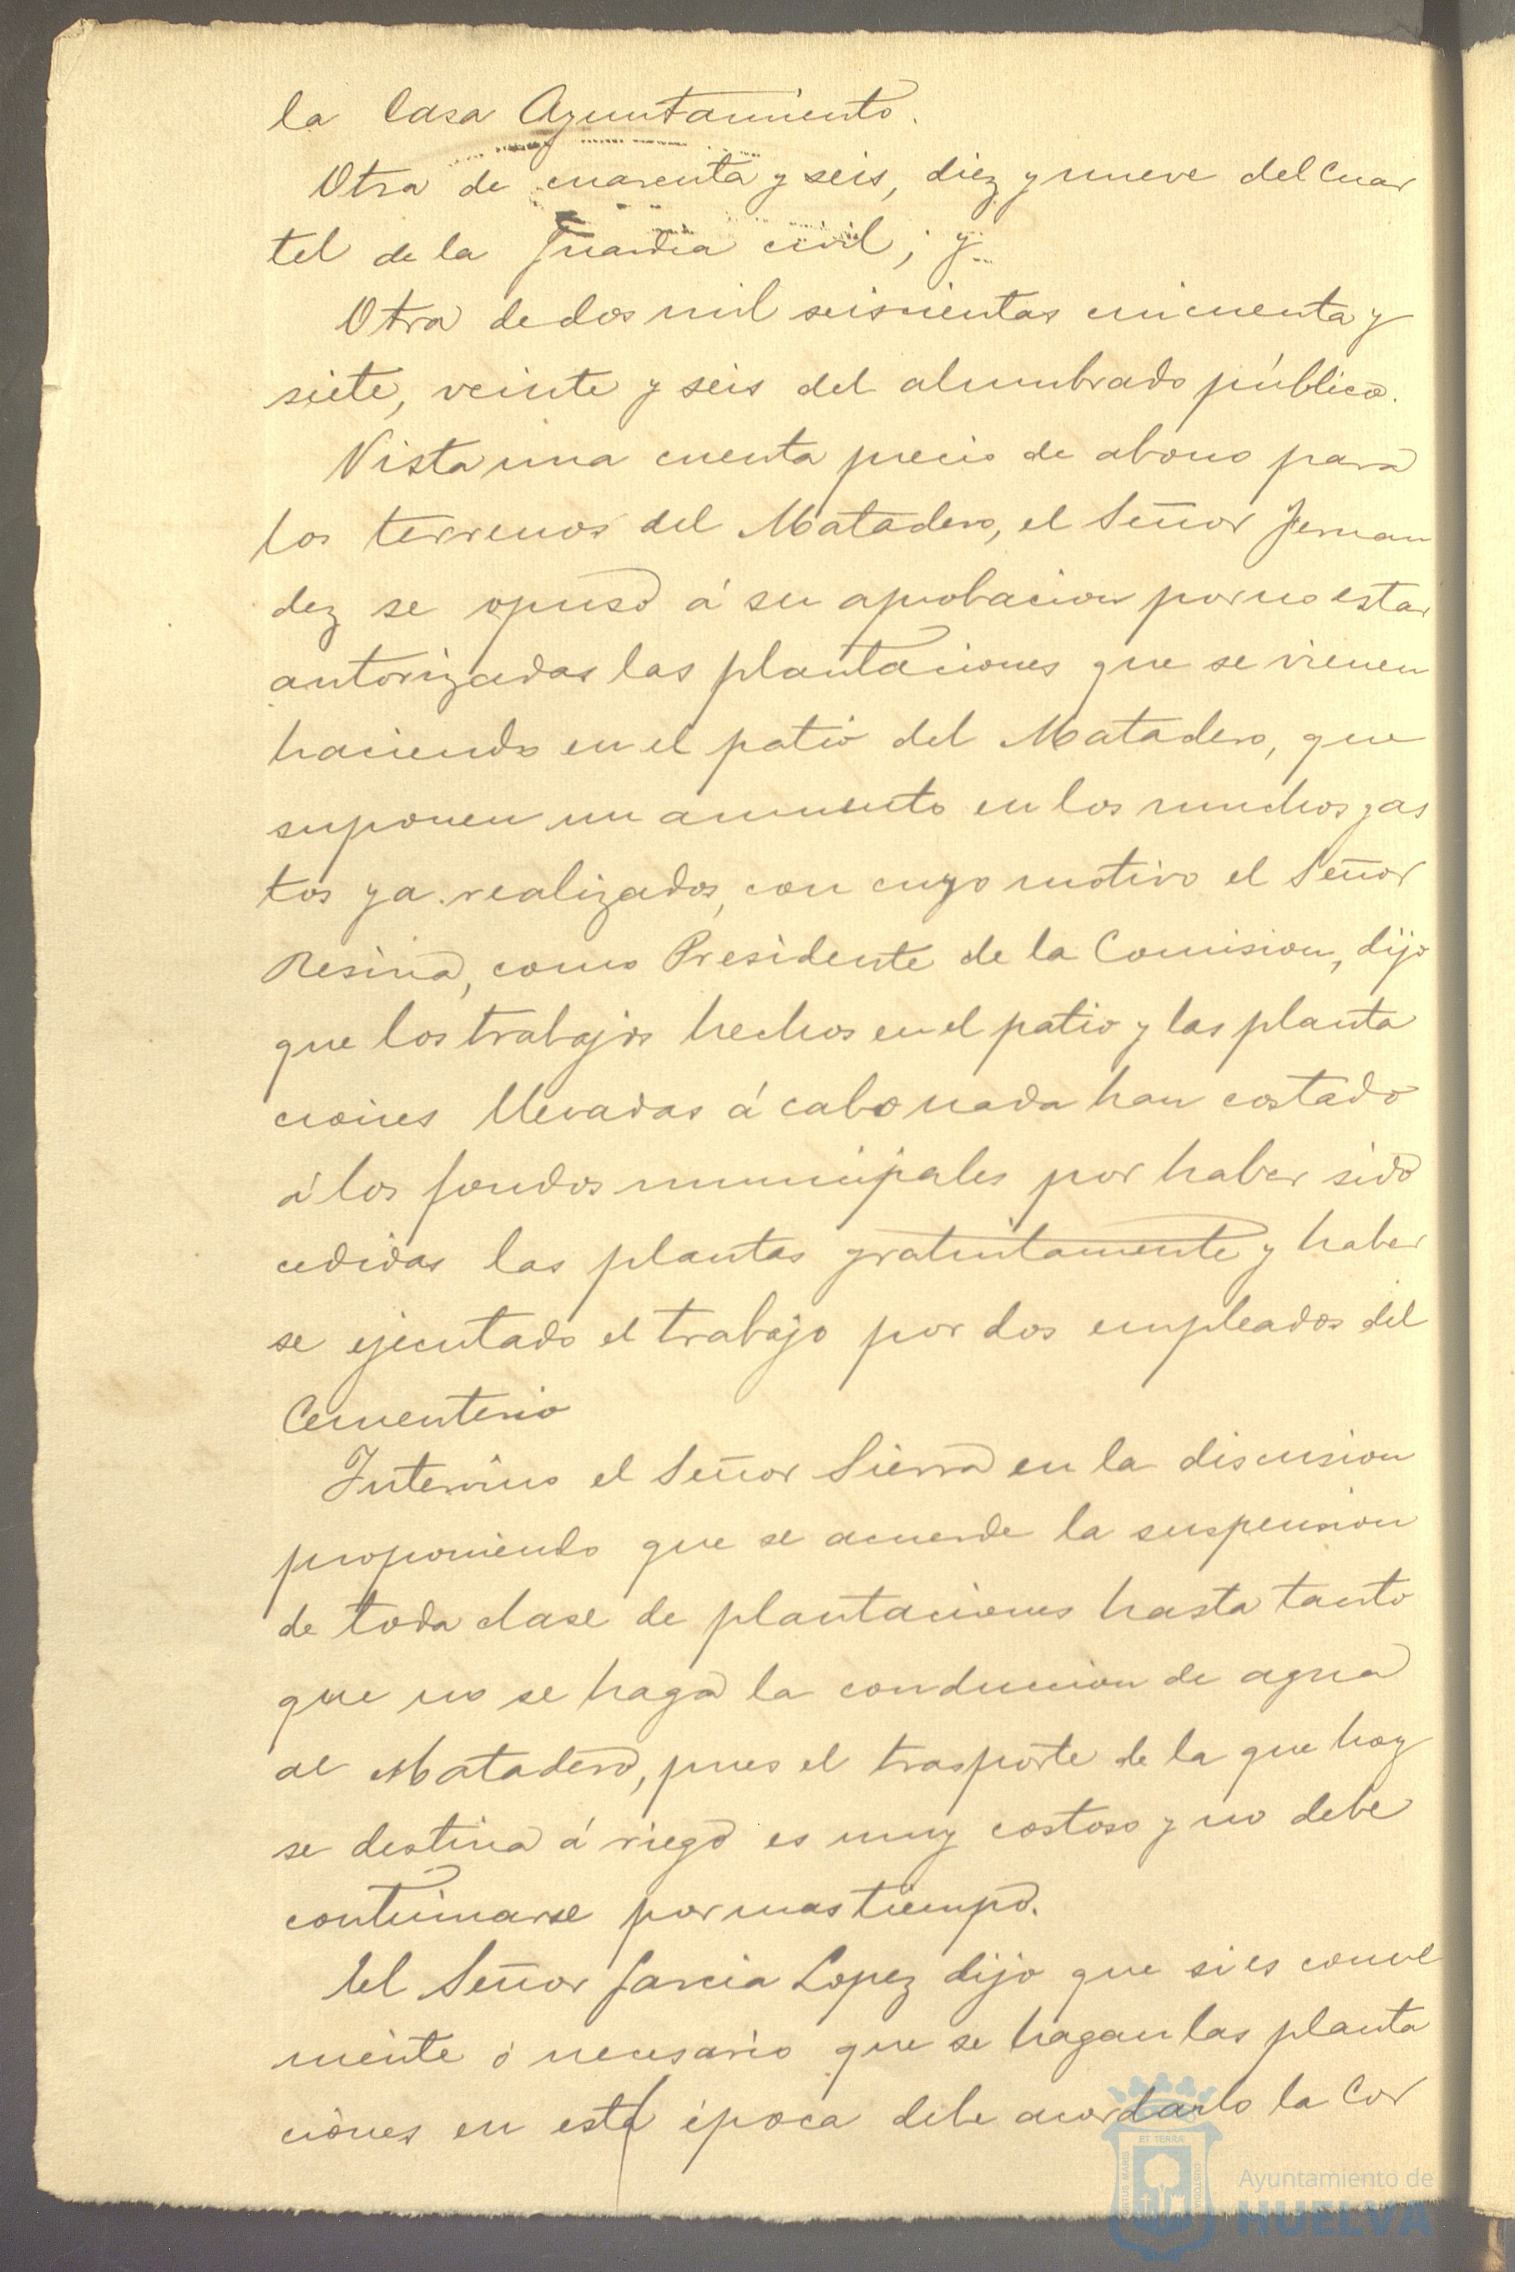 la Casa Ayuntamiento.
Otra de cuarenta y seis, diez y nueve del Cuar
tel de la Guardia civil; y
Otra de dos mil seiscientas cincuenta y
siete, veinte y seis del alumbrado público.
Vista una cuenta precio de abono para
los terrenos del Matadero, el Señor Fernan
dez se opuso á su aprobacion por no estar
autorizadas las plantaciones que se vienen
haciendo en el patio del Matadero, que
suponen un aumento en los muchos gas
tos ya realizados, con cuyo motivo el Señor
Resina, como Presidente de la Comision, dijo
que los trabajos hechos en el patio y las planta
ciones llevadas á cabo nada han costado
á los fondos municipales por haber sido
cedidas las plantas gratuitamente y haber
se ejecutado el trabajo por dos empleados del
Cementerio
Intervino el Señor Sierra en la discusion
proponiendo que se acuerde la suspension
de toda clase de plantaciones hasta tanto
que no se haga la conduccion de agua
al Matadero, pues el trasporte de la que hoy
se destina á riego es muy costoso y no debe
continuarse por mas tiempo.
El Señor Garcia Lopez dijo que si es conve
niente ó necesario que se hagan las planta
ciones en esta época debe acordarlo la Cor
ET TERRA
Ayuntamiento de
HUELVA